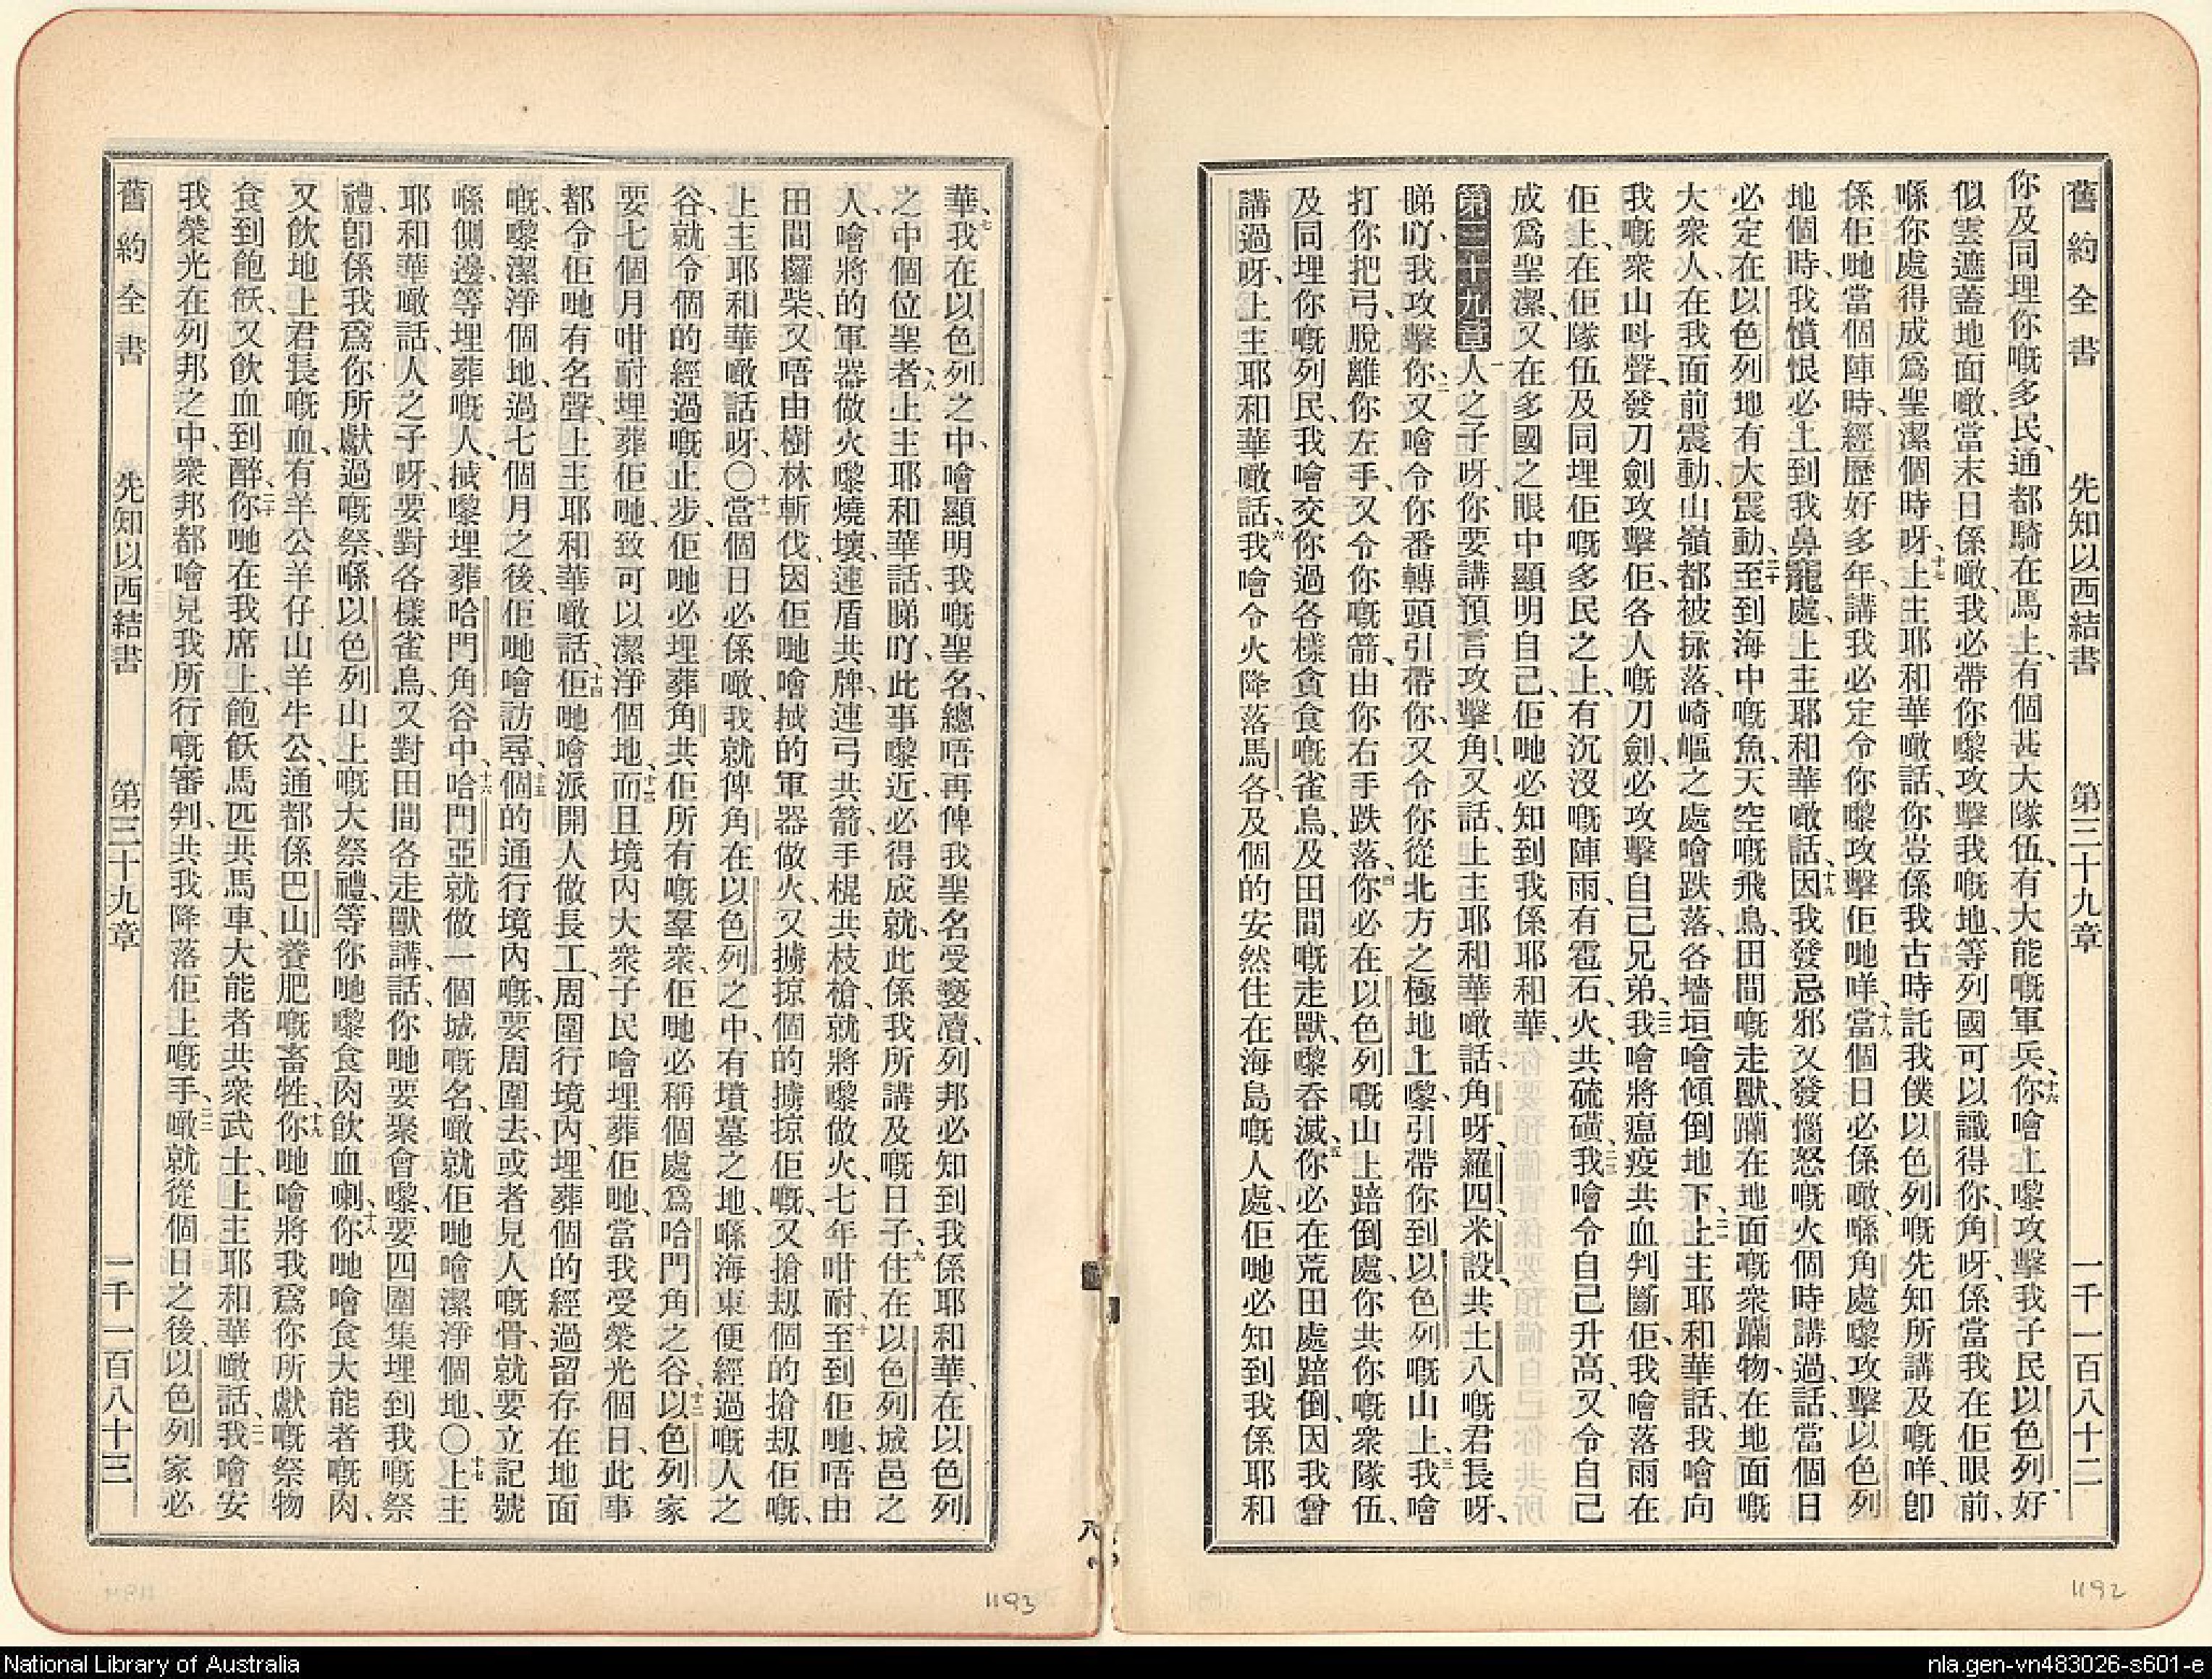 舊約全書 先知以西結書 第三十九章 一千一百八十二
你及同埋你嘅多民、通都騎在馬上、有個甚大隊伍、有大能嘅軍兵、十六你噲上嚟攻擊我子民以色列、好
似雲遮蓋地面噉、當末日係噉、我必帶你嚟攻擊我嘅地、等列國可以識得你、角呀、係當我在佢眼前、
喺你處得成爲聖潔個時呀、十七上主耶和華噉話、你豈係我古時託我僕以色列嘅先知所講及嘅咩、卽
係佢哋當個陣時、經歷好多年、講我必定令你嚟攻擊佢哋咩、十八當個日必係噉、喺角處嚟攻擊以色列
地個時、我憤恨必上到我鼻竉處、上主耶和華噉話、十九因我發忌邪又發惱怒嘅火個時講過、話、當個日
必定在以色列地有大震動、二十至到海中嘅魚、天空嘅飛鳥、田間嘅走獸、躝在地面嘅衆躝物、在地面嘅
大衆人、在我面前震動、山嶺都被揼落、崎嶇之處噲跌落、各墻垣噲傾倒地下、二一上主耶和華話、我噲向
我嘅衆山呌聲、發刀劍攻擊佢、各人嘅刀劍、必攻擊自己兄弟、二二我噲將瘟疫共血判斷佢、我噲落雨在
佢上、在佢隊伍及同埋佢嘅多民之上、有沉沒嘅陣雨、有雹石、火共硫磺、二三我噲令自己升高、又令自己
成爲聖潔、又在多國之眼中顯明自己、佢哋必知到我係耶和華、
第三十九章 一人之子呀、你要講預言攻擊角、又話、上主耶和華噉話、角呀、羅四米設、共土八嘅君長呀、
睇吖、我攻擊你、二又噲令你番轉頭引帶你、又令你從北方之極地上嚟、引帶你到以色列嘅山上、三我噲
打你把弓、脫離你左手、又令你嘅箭、由你右手跌落、四你必在以色列嘅山上踣倒處、你共你嘅衆隊伍、
及同埋你嘅列民、我噲交你過各樣貪食嘅雀鳥、及田間嘅走獸、嚟吞滅、五你必在荒田處踣倒、因我曾
講過呀、上主耶和華噉話、六我噲令火降落馬各、及個的安然住在海島嘅人處、佢哋必知到我係耶和
華、七我在以色列之中、噲顯明我嘅聖名、總唔再俾我聖名受褻瀆、列邦必知到我係耶和華、在以色列
之中個位聖者、八上主耶和華話、睇吖、此事嚟近、必得成就、此係我所講及嘅日子、九住在以色列城邑之
人、噲將的軍器做火嚟燒壞、連盾共牌、連弓共箭、手棍共枝槍、就將嚟做火、七年咁耐、十至到佢哋、唔由
田間攞柴、又唔由樹林斬伐、因佢哋噲拭的軍器做火、又擄掠個的擄掠佢嘅、又搶刼個的搶刼佢嘅、
上主耶和華噉話呀、〇十一當個日必係噉、我就俾角在以色列之中、有墳墓之地、喺海東便經過嘅人之
谷、就令個的經過嘅止步、佢哋必埋葬角共佢所有嘅羣衆、佢哋必稱個處爲哈門角之谷、十二以色列家
要七個月咁耐埋葬佢哋、致可以潔淨個地、十三而且境內大衆子民噲埋葬佢哋、當我受榮光個日、此事
都令佢哋有名聲、上主耶和華噉話、十四佢哋噲派開人做長工、周圍行境內、埋葬個的經過留存在地面
嘅、嚟潔淨個地、過七個月之後、佢哋噲訪尋、十五個的通行境內嘅、要周圍去、或者見人嘅骨、就要立記號
喺側邊、等埋葬嘅人、拭嚟埋葬哈門角谷中、十六哈門亞就做一個城嘅名、噉就佢哋噲潔淨個地、〇十七上主
耶和華噉話、人之子呀、要對各樣雀鳥、又對田間各走獸講、話、你哋要聚會嚟、要四圍集埋到我嘅祭
禮、卽係我爲你所獻過嘅祭、喺以色列山上嘅大祭禮、等你哋嚟食肉飲血喇、十八你哋噲食大能者嘅肉、
又飲地上君長嘅血、有羊公羊仔山羊牛公、通都係巴山養肥嘅畜牲、十九你哋噲將我爲你所獻嘅祭物
食到飽飫、又飲血到醉、二十你哋在我席上、飽飫馬匹共馬車、大能者共衆武士、上主耶和華噉話、二一我噲安
我榮光在列邦之中、衆邦都噲見我所行嘅審判、共我降落佢上嘅手、二二噉就從個日之後、以色列家必
舊約全書 先知以西結書 第三十九章 一千一百八十三
1193
1192
National Library of Australia
nla.gen-vn483026-s601-e